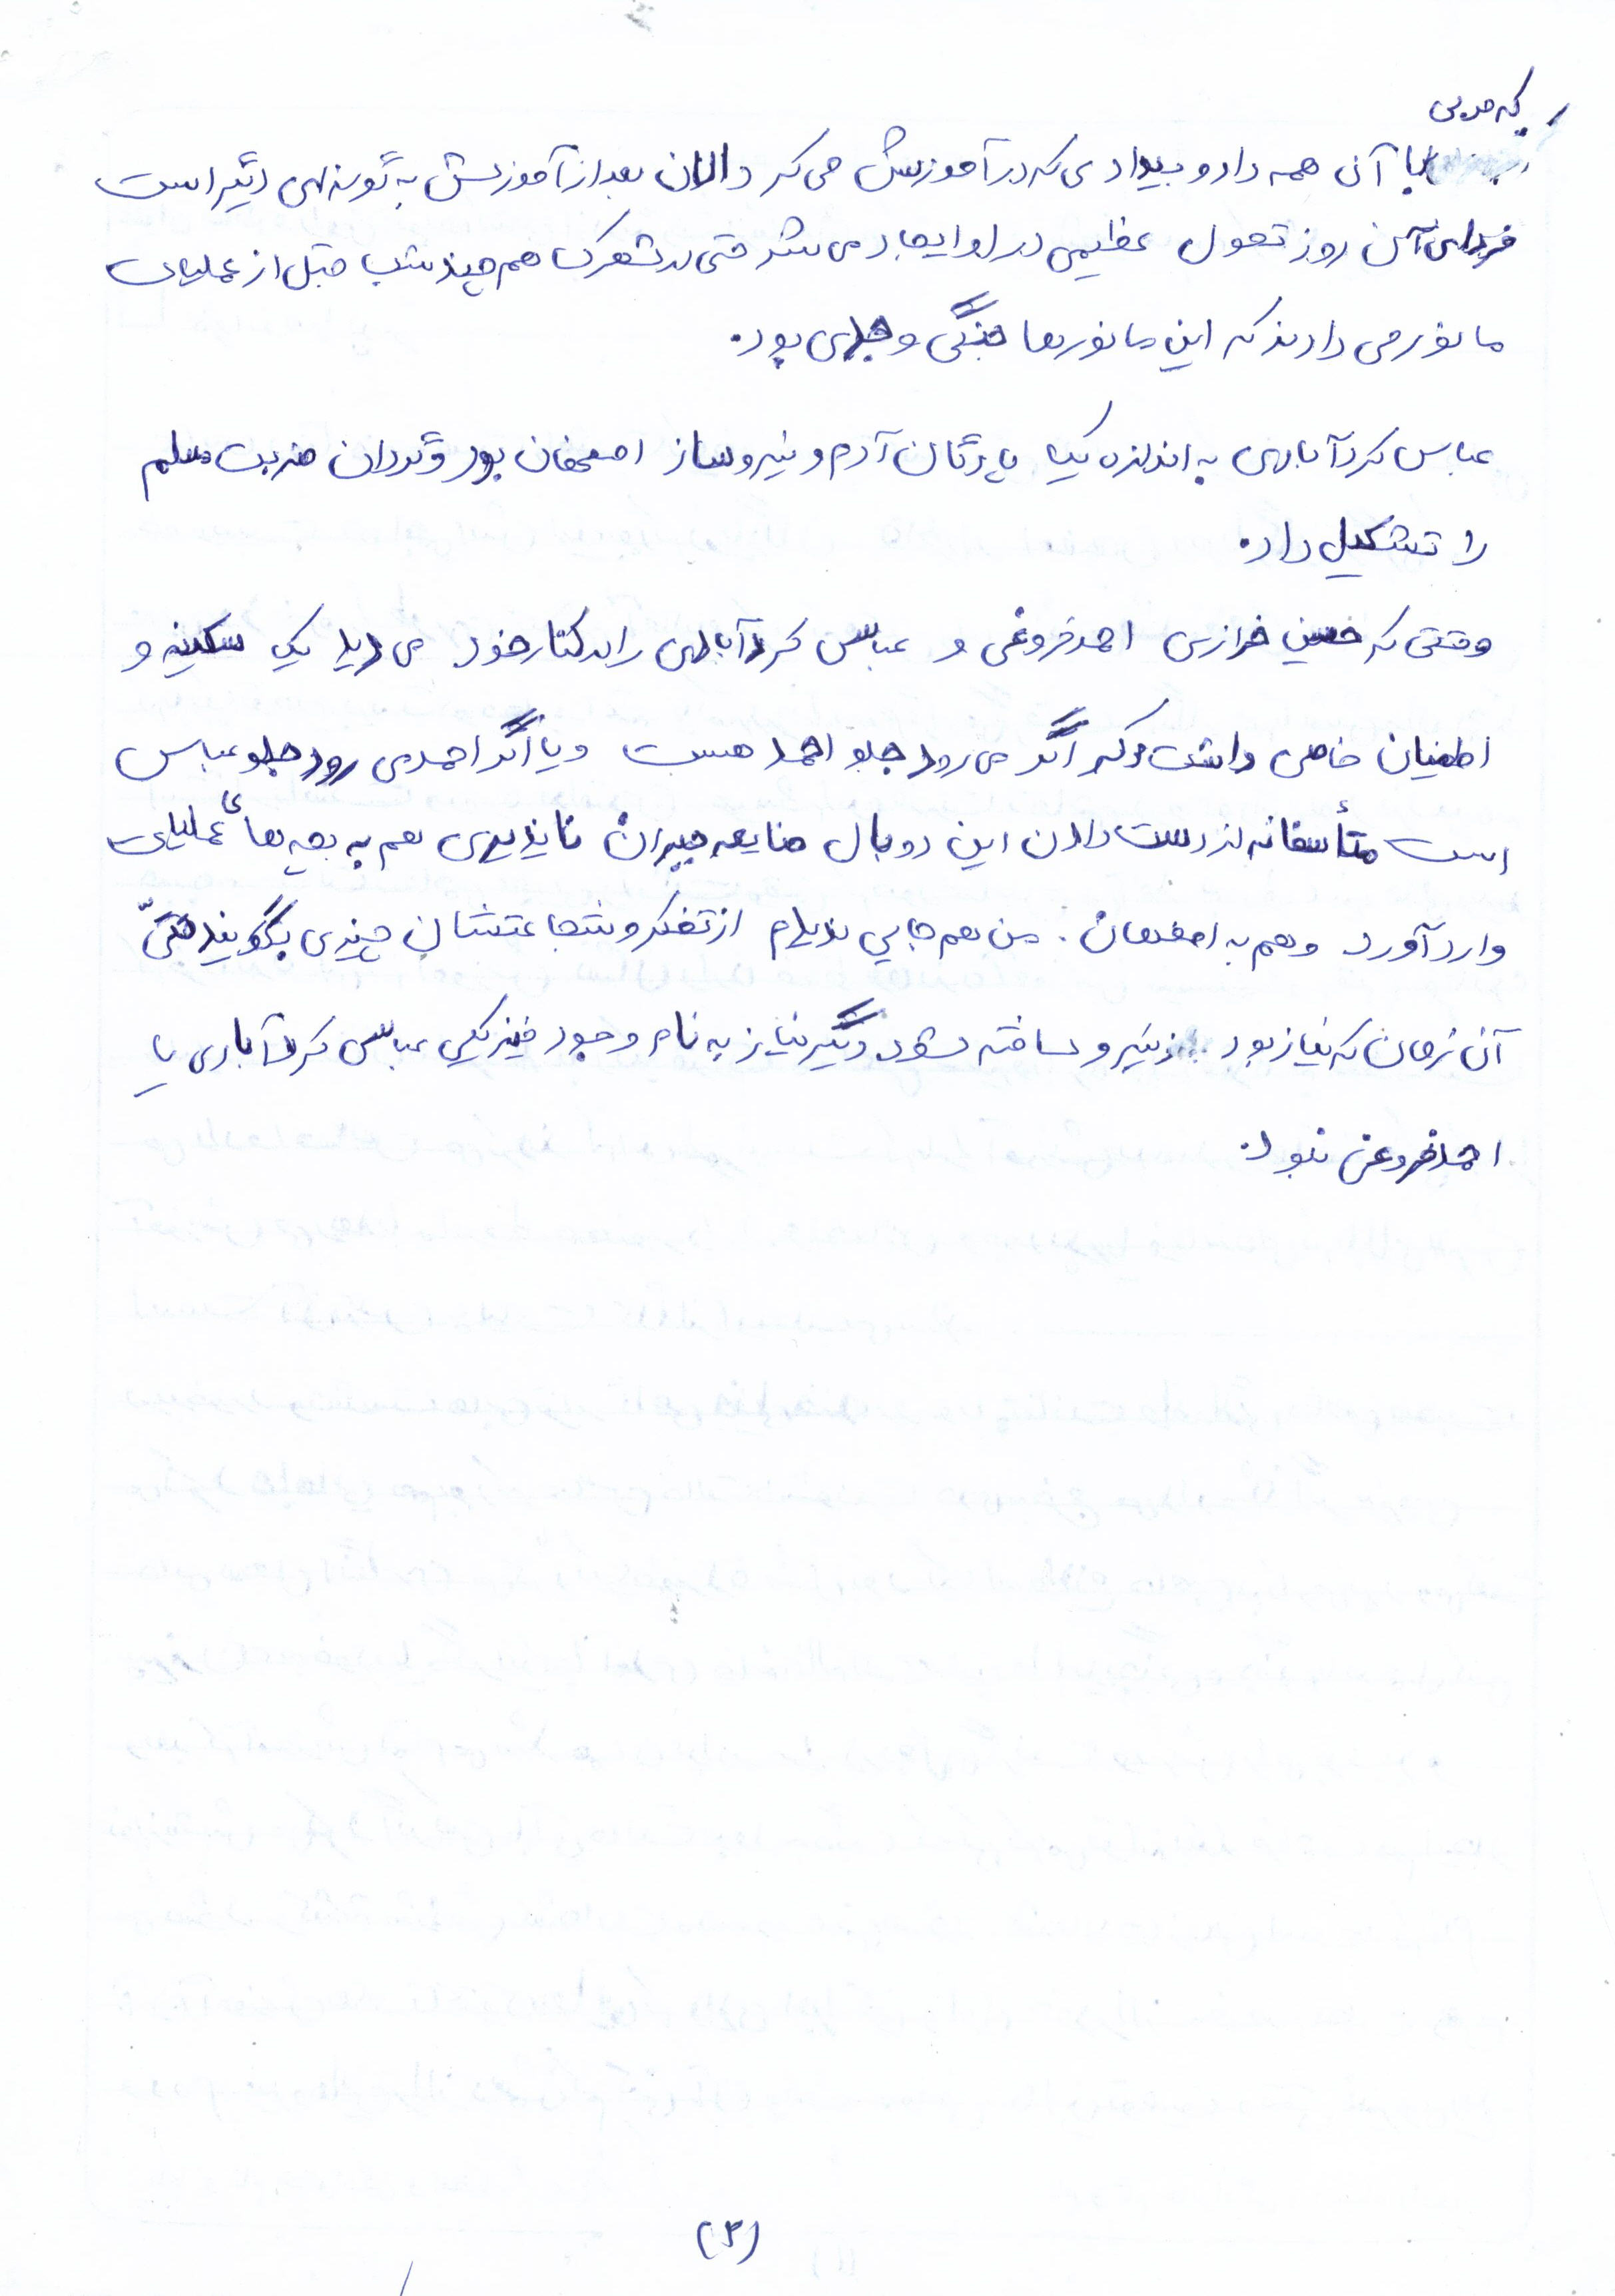 که مربی
با آن همه داد و بیدادی که در آموزش می کرد و الان بعد از آموزش به گونه ای دیگر است
فردای آن روز تحول عظیمی در او ایجاد می شد حتی در شهرک هم چند شب قبل از عملیات
مانور می دادند که این مانورها جنگی و جدی بود.
عباس کردآبادی به اندازه یک پادگان آدم و نیروساز اصفهان بود گردان ضربت مسلم
را تشکیل داد.
وقتی که حسین خرازی احمد فروغی و عباس کردآبادی را در کنار خود می دید یک سکینه و
اطمینان خاصی داشت که اگر می رود جلو احمد هست و یا اگر احمد می رود جلو عباس
است متأسفانه از دست دادن این دو بال ضایعه جبران ناپذیری هم به بچه های عملیات
وارد آورد و هم به اصفهان. من هم جایی ندیدم از تفکر و شجاعتشان چیزی بگویند حتی
آن زمان که نیاز بود نیرو ساخته شود دیگر نیاز به نام وجود فیزیکی عباس کردآبادی یا
احمد فروغی نبود.
(۳)